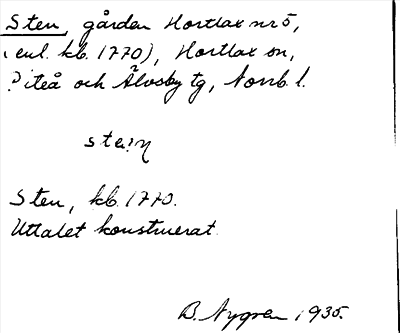 Sten, gården Hortlax nr 5,
(enl. kb. 1770), Hortlax sn,
Piteå och Älvsby tg, Norrb. l.
ste:n
Sten, kb. 1770.
Uttalet konstruerat.
B. Nygren 1935.